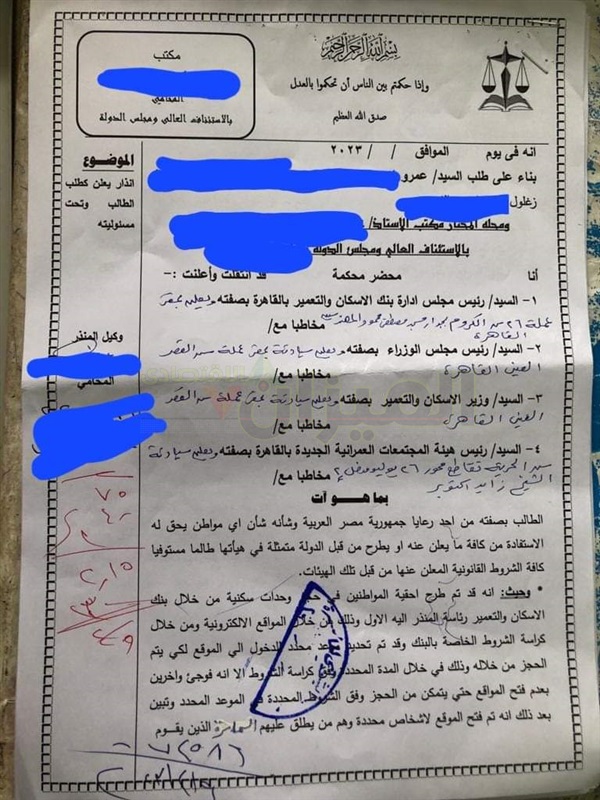 بسم الله الرحمن الرحيم
وإذا حكمتم بين الناس أن تحكموا بالعدل
صدق الله العظيم
مكتب
المحامي
بالاستئناف العالى ومجلس الدولة
انه فى يوم الموافق / / ٢٠٢٣
بناء على طلب السيد/ عمرو
زغلول
ومحله المختار مكتب الاستاذ/
بالاستئناف العالى ومجلس الدولة
أنا محضر محكمة قد انتقلت وأعلنت :-
١- السيد/ رئيس مجلس ادارة بنك الاسكان والتعمير بالقاهرة بصفته ويعلن بمقر
عمله ٢٦ ش الكروم
القاهرة مخاطبا مع/
٢- السيد/ رئيس مجلس الوزراء بصفته ويعلن سيادته بمقر عمله ش القصر
العينى القاهرة مخاطبا مع/
٣- السيد/ وزير الاسكان والتعمير بصفته ويعلن سيادته بمقر عمله ش القصر
العينى القاهرة مخاطبا مع/
٤- السيد/ رئيس هيئة المجتمعات العمرانية الجديدة بالقاهرة بصفته ويعلن سيادته
تقاطع محور ٢٦ يوليو
الشيخ زايد اكتوبر مخاطبا مع/
بما هو آت
الطالب بصفته من احد رعايا جمهورية مصر العربية وشأنه شأن اي مواطن يحق له
الاستفادة من كافة ما يعلن عنه او يطرح من قبل الدولة متمثلة في هيأتها طالما مستوفيا
كافة الشروط القانونية المعلن عنها من قبل تلك الهيئات.
* وحيث: انه قد تم طرح احقية المواطنين في وحدات سكنية من خلال بنك
الاسكان والتعمير رئاسة المنذر اليه الاول وذلك من خلال المواقع الالكترونية ومن خلال
كراسة الشروط الخاصة بالبنك وقد تم تحديد موعد محدد للدخول الي الموقع لكي يتم
الحجز من خلاله وذلك في خلال المدة المحددة كراسة الشروط الا انه فوجئ واخرين
بعدم فتح المواقع حتي يتمكن من الحجز وفق الشروط المحددة في الموعد المحدد وتبين
بعد ذلك انه تم فتح الموقع لاشخاص محددة وهم من يطلق عليهم السماسرة الذين يقوم
الموضوع
انذار يعلن كطلب
الطالب وتحت
مسئوليته
وكيل المنذر
المحامي